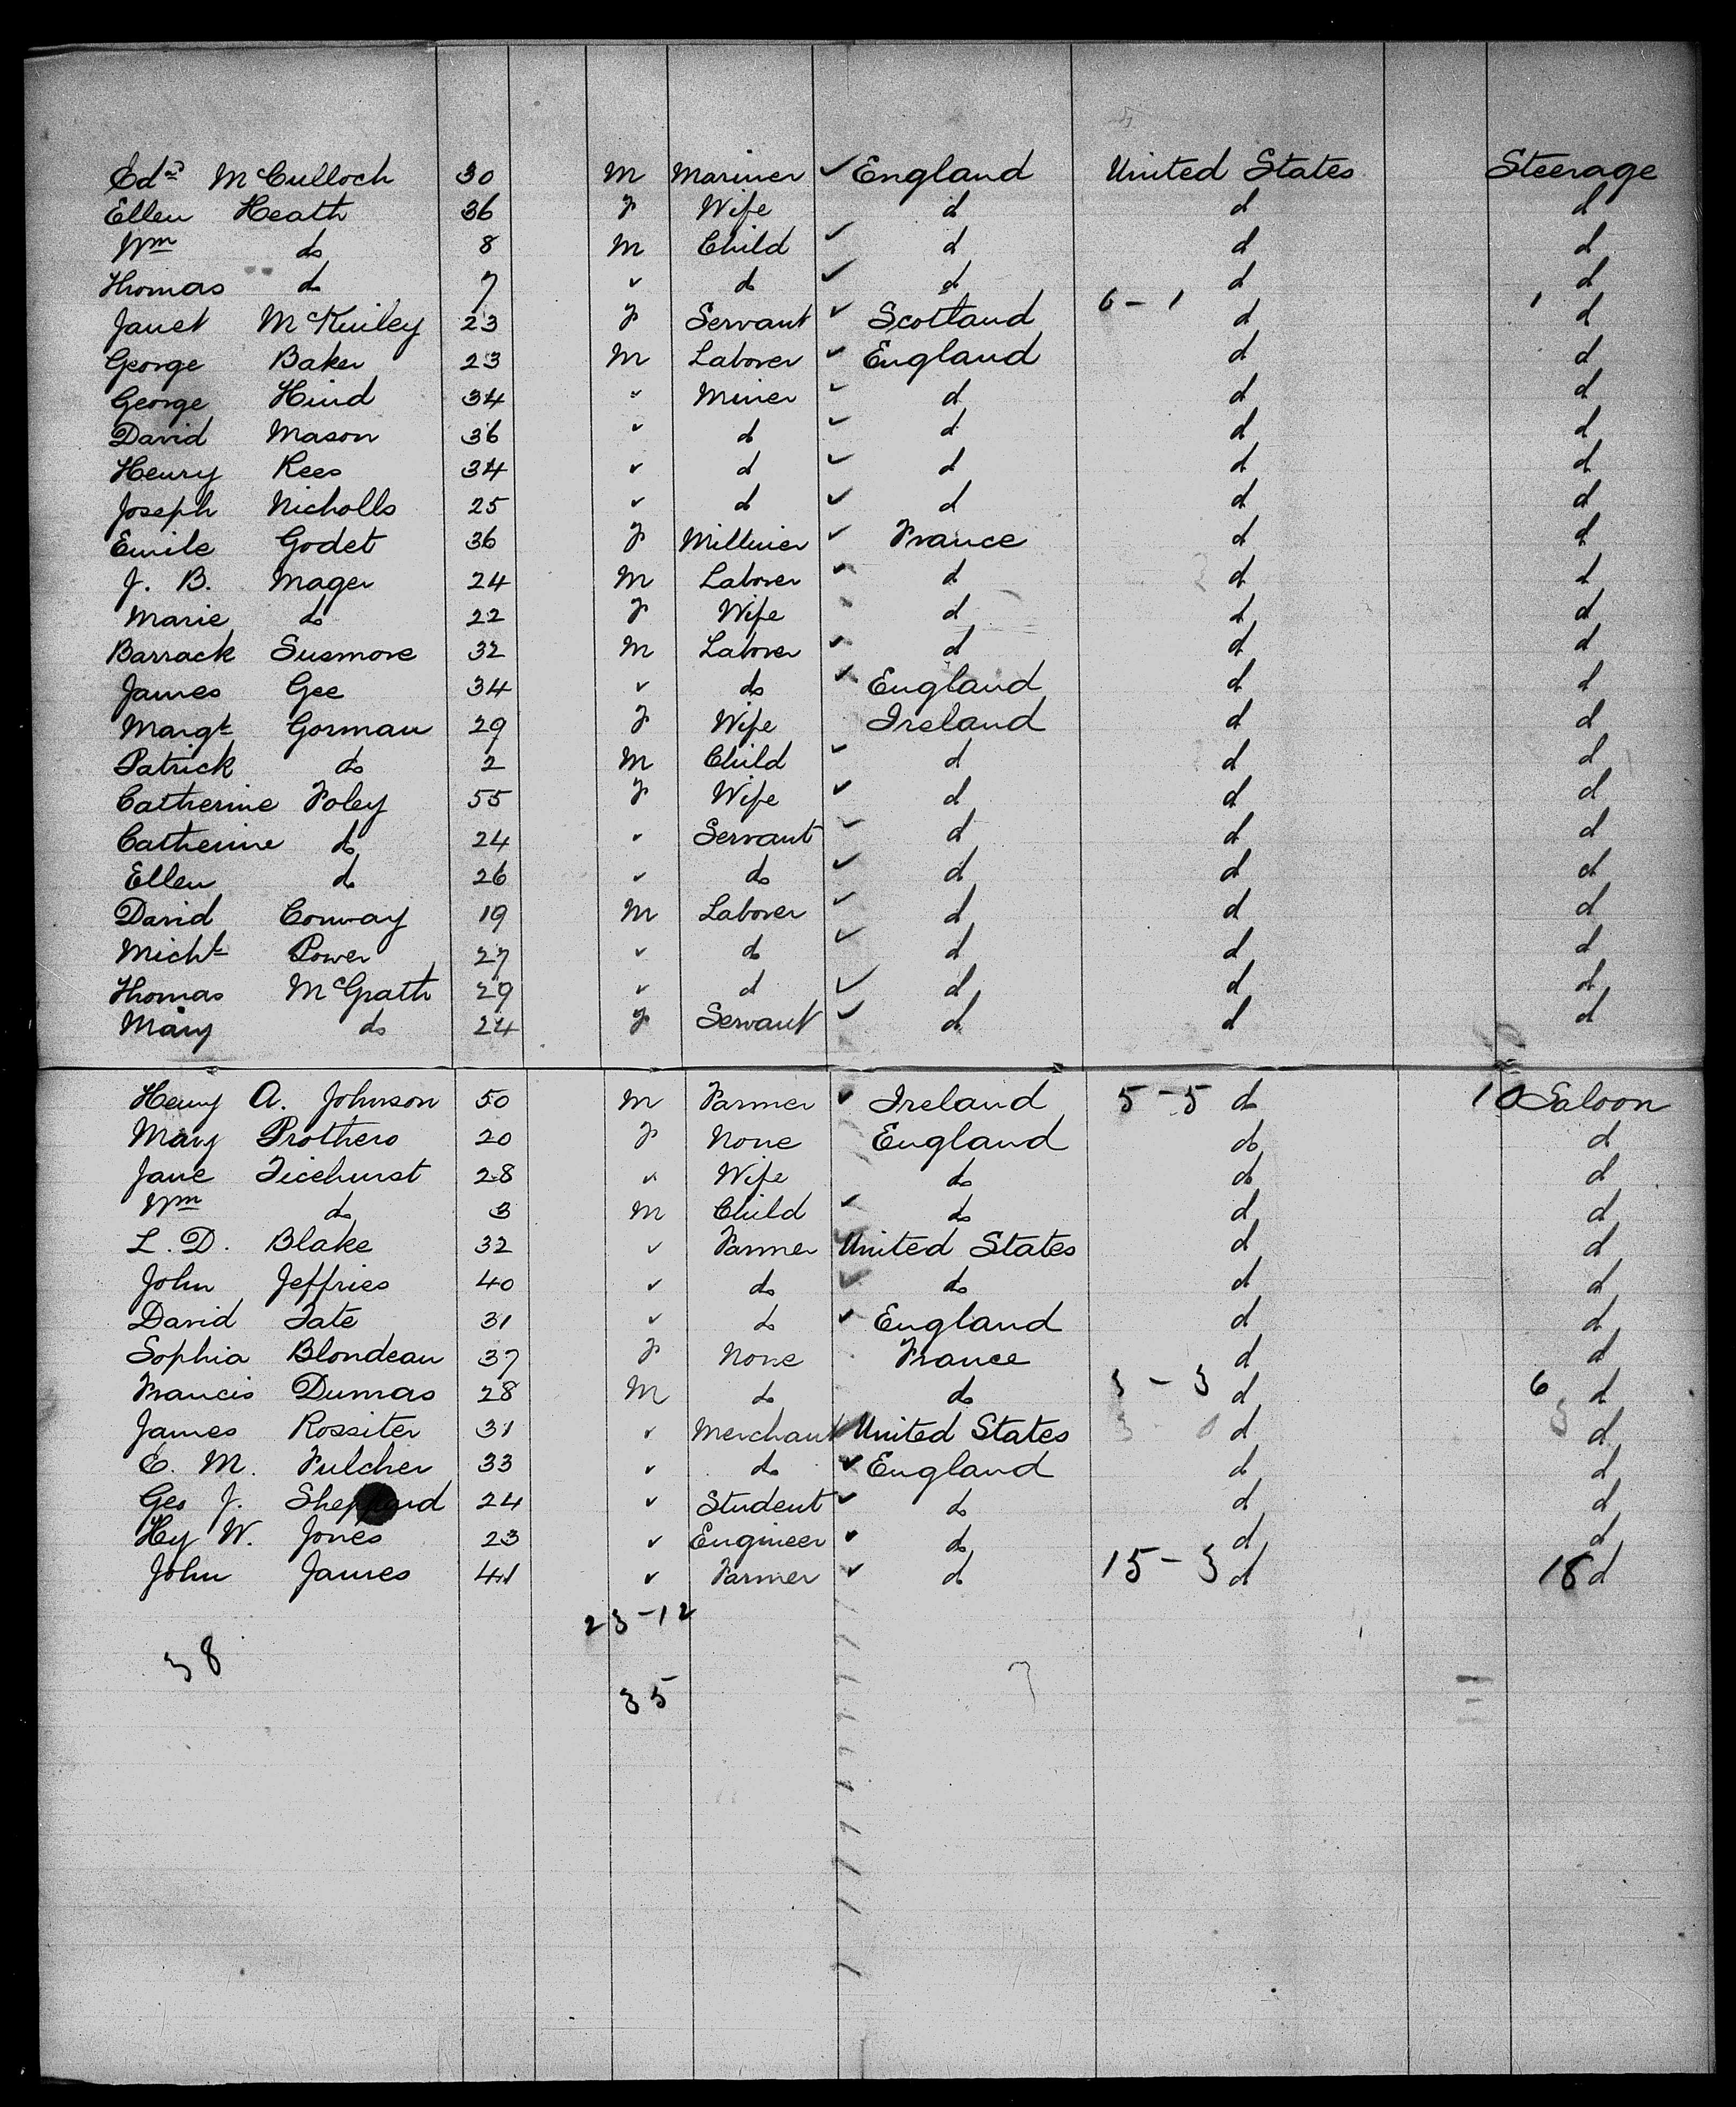 Edwd McCulloch 30 M Mariner ✓ England United States Steerage
Ellen Heath 36 F Wife d d d
Wm do 8 M Child ✓ d d d
Thomas d 7 ✓ d ✓ d d d
Janet McKinley 23 F Servant ✓ Scotland 6-1 d 1 d
George Baker 23 M Laborer ✓ England d d
George Hind 34 ✓ Miner ✓ d d d
David Mason 36 ✓ d ✓ d d d
Henry Rees 34 ✓ d ✓ d d d
Joseph Nicholls 25 ✓ d ✓ d d d
Emile Godet 36 F Milliner ✓ France d d
J. B. Mager 24 M Laborer ✓ d d d
Marie do 22 F Wife d d d
Barrack Susmore 32 M Laborer ✓ d d d
James Gee 34 ✓ do ✓ England d d
Margt Gorman 29 F Wife Ireland d d
Patrick do 2 M Child ✓ d d d
Catherine Foley 55 F Wife ✓ d d d
Catherine do 24 ✓ Servant ✓ d d d
Ellen d 26 ✓ do ✓ d d d
David Conway 19 M Laborer ✓ d d d
Michl Power 27 ✓ d ✓ d d d
Thomas McGrath 29 ✓ d ✓ d d d
Mary do 24 F Servant ✓ d d d
Henry A. Johnson 50 M Farmer ✓ Ireland 5-5 do 10 Saloon
Mary Prothero 20 F None England do d
Jane Ticehurst 28 ✓ Wife do do d
Wm do 3 M Child ✓ do d d
L. D. Blake 32 ✓ Farmer United States d d
John Jeffries 40 ✓ do ✓ do d d
David Tate 31 ✓ do ✓ England d d
Sophia Blondeau 37 F None France d d
Francis Dumas 28 M do do 3-3 d 6 d
James Rossiter 31 ✓ Merchant ✓ United States d d
E. M. Fulcher 33 ✓ do ✓ England d d
Geo J. Sheppard 24 ✓ Student ✓ do d d
Hy W. Jones 23 ✓ Engineer ✓ do d d
John James 41 ✓ Farmer ✓ d 15-3 d 18 d
23-12
38
35